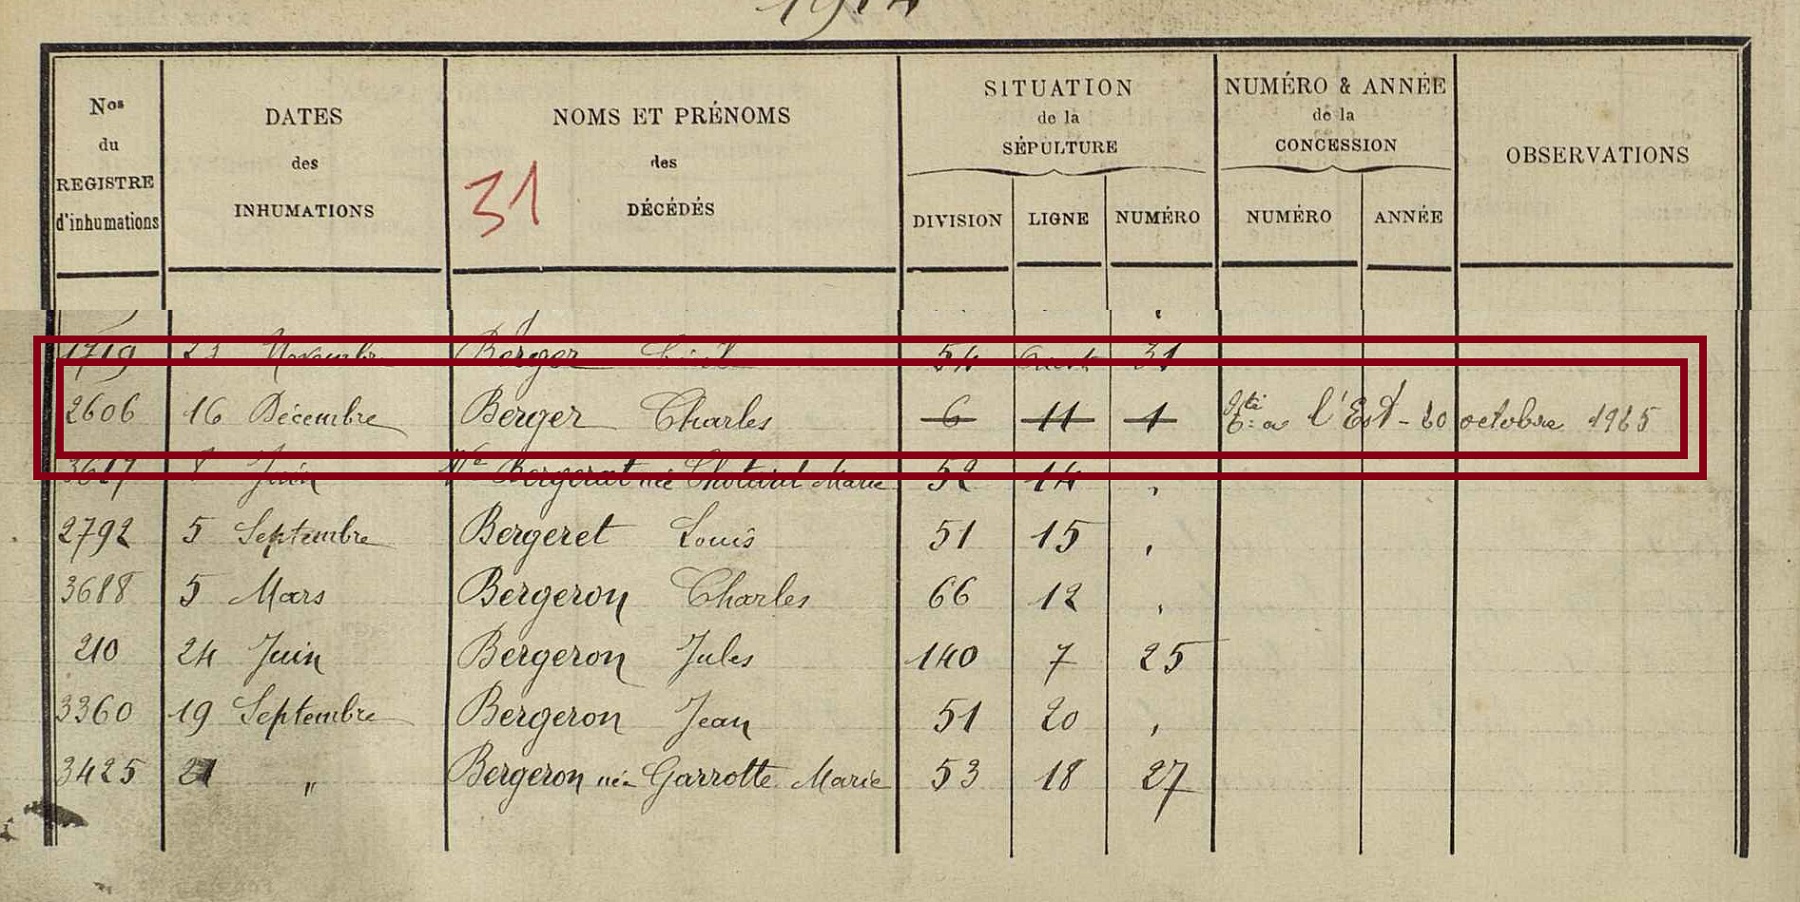 Nos
du
REGISTRE
d'inhumations
DATES
des
INHUMATIONS
31
NOMS ET PRÉNOMS
des
DÉCÉDÉS
SITUATION
de la
SÉPULTURE
DIVISION LIGNE NUMÉRO
NUMÉRO & ANNÉE
de la
CONCESSION
NUMÉRO ANNÉE
OBSERVATIONS
1719 23 Novembre Berger 54 31
2606 16 Décembre Berger Charles 6 11 1 à l'Est - 20 octobre 1925
3627 8 Juin Bergerat née Chotard Marie 52 14 "
2792 5 Septembre Bergeret Louis 51 15 "
3688 5 Mars Bergeron Charles 66 12 "
210 24 Juin Bergeron Jules 140 7 25
3360 19 Septembre Bergeron Jean 51 20 "
3425 21 " Bergeron née Garrotte Marie 53 18 27